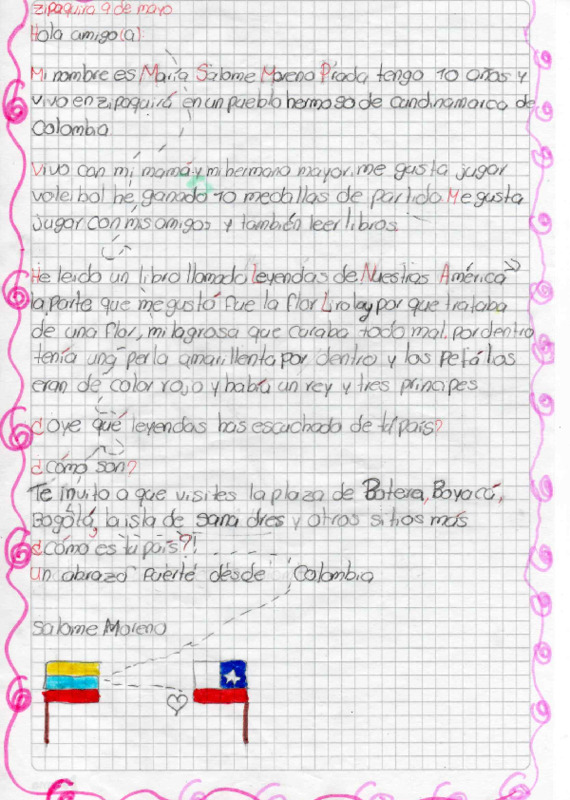 Zipaquirá 9 de mayo
Hola amigo(a):
Mi nombre es María Salome Moreno Prada tengo 10 años y
vivo en zipaquirá en un pueblo hermoso de cundinamarca de
Colombia
Vivo con mi mamá y mi hermano mayor. me gusta jugar
voleibol he ganado 10 medallas de partido. Me gusta
Jugar con mis amigos y también leer libros.
He leido un libro llamado Leyendas de Nuestras América
la parte que me gustó fue la flor Lirolay por que trataba
de una flor, milagrosa que curaba todo mal. por dentro
tenía una perla amarillenta por dentro y los petálos
eran de color rojo y había un rey y tres principes
¿Oye qué leyendas has escuchado de tú país?
¿cómo son?
Te invito a que visites la plaza de Botera, Boyacá,
Bogotá, la isla de sana dres y otros sitios más
¿cómo es tú país?
un abrazo fuerte desde Colombia
Salome Moreno